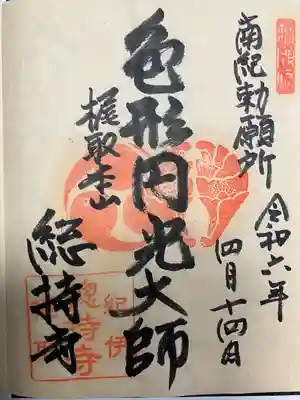 南紀勅願所
令和六年
四月十四日
色形円光大師
梶取本山
総持寺
紀伊
總持寺